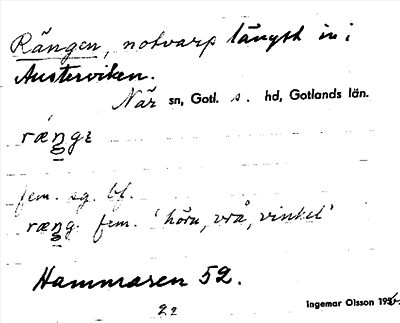 Rängen, notvarp längst in i
Austerviken.
När sn, Gotl. s. hd, Gotlands län.
ræŋgɛ
fem. sg. bf.
ræŋg. fem. 'hörn, vrå, vinkel'
Hammaren 52.
22
Ingemar Olsson 195